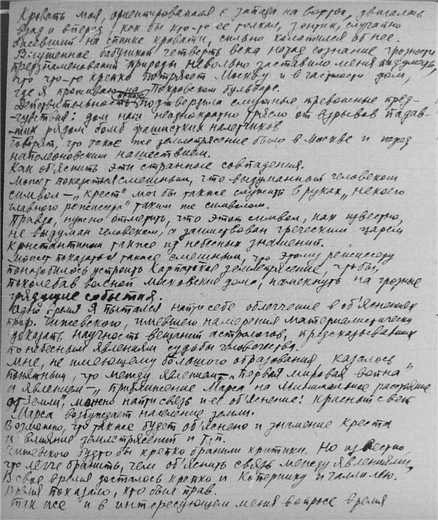 Кровать моя, ориентированная с запада на восток, двигалась
взад и вперед, как бы кто-то ее толкал, зонтик, случайно
висевший на спинке кровати, сильно колотился об нее.
Внушенное бабушкой четверть века назад сознание грозности
предзнаменований природы невольно заставило меня подумать,
что что-то крепко потрясет Москву и в частности дом,
где я проживаю на Покровском бульваре.
Действительность подтвердила смутные тревожные пред-
чувствия: дом наш неоднократно трясло от взрывов падав-
ших рядом бомб фашистских налетчиков.
Говорят, что такое же землетрясение было в Москве и перед
наполеоновским нашествием.
Как объяснить эти странные совпадения.
Может показаться смешным, что выдуманный человеком
символ — "Крест" мог бы также служить в руках "некоего
главного режиссера" таким же символом.
Правда, нужно отметить, что этот символ, как известно,
не выдуман человеком, а заимствован греческим царем
Константином также из небесных знамений.
Может показаться также смешным, что этому режиссеру
понадобилось устроить Карпатское землетрясение, чтобы,
поколебав весной московские дома, намекнуть на грозные
грядущие события.
Одно время я пытался найти себе облегчение в объяснениях
проф. Чижевского, имевшего намерения материалистически
доказать научность решений астрологов, предсказывавших
по небесным явлениям судьбы человечества.
Мне, не имеющему большого образования, казалось
понятным, что между явлением "первой мировой войны"
и явлением — приближение Марса на минимальное расстояние
от Земли, можно найти связь и ее объяснение: красный свет
Марса возбуждает население земли.
Возможно, что также будет объяснено и знамение Креста
и влияние землетрясений и т.п.
Чижевского будто бы крепко бранили критики. Но известно,
что легче бранить, чем объяснить связь между явлениями,
В свое время досталось крепко и Копернику и Галилею.
Время показало, кто был прав.
Так же и в интересующем меня вопросе время